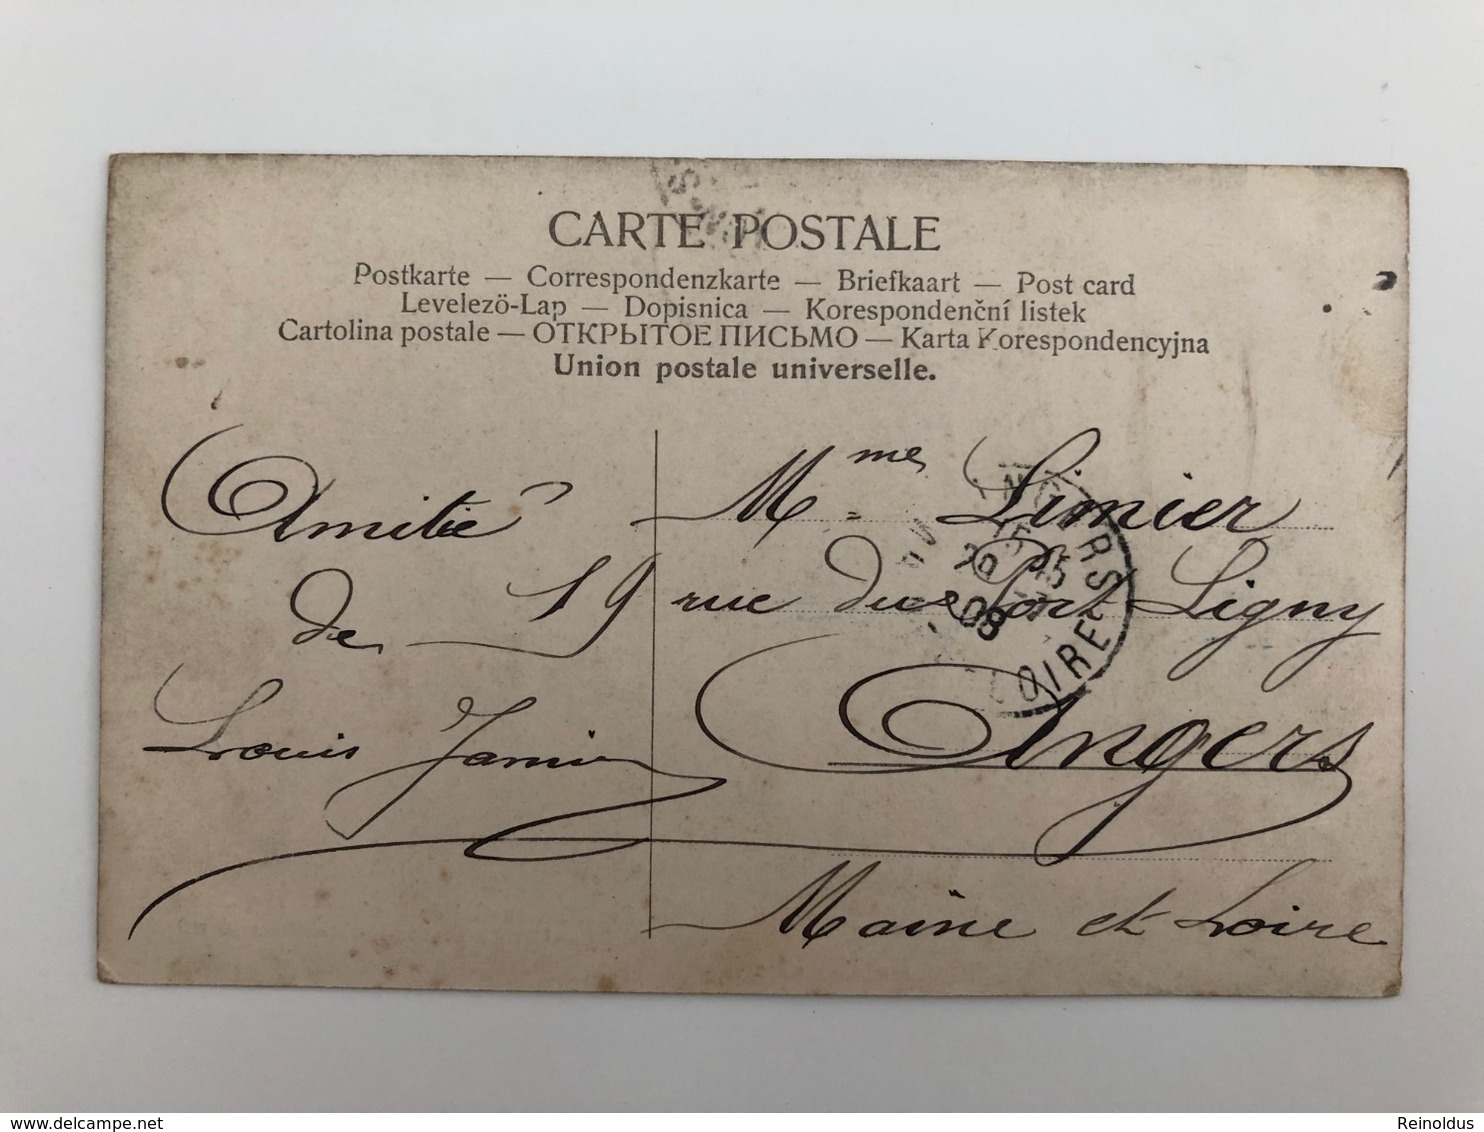 CARTE POSTALE
Postkarte — Correspondenzkarte — Briefkaart — Post card
Levelezö-Lap — Dopisnica — Korespondenční listek
Cartolina postale — ОТКРЫТОЕ ПИСЬМО — Karta Korespondencyjna
Union postale universelle.
Amitié
de
Louis Jamin
Mme Limier
19 rue du Port Ligny
Angers
Maine et Loire
ANGERS
15
29
08
LOIRE
delcampe.net
Reinoldus